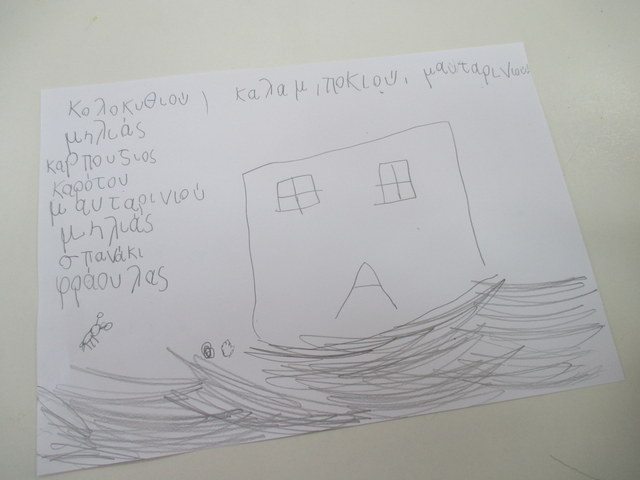 κολοκυθιού, καλαμ,ποκιού, μανταρινιού
μηλιάς
καρπουζιος
καρότου
μανταρινιού
μηλιάς
σπανάκι
φράουλας